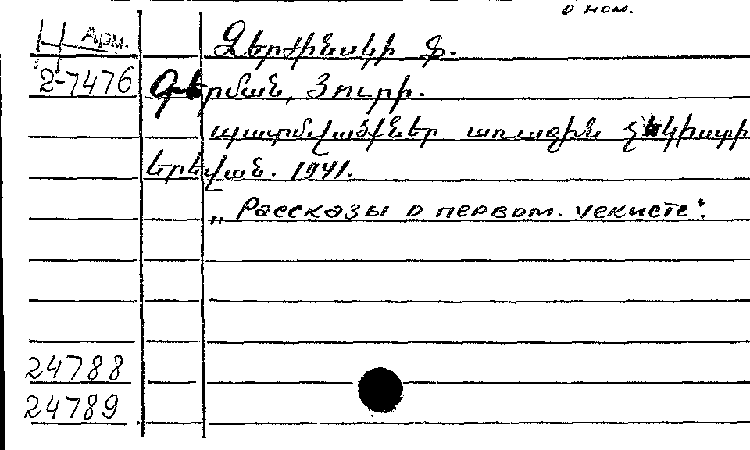 о нем.
Н Арм. Ձերժինսկի Ֆ.
2-7476 Գերման, Յուրի.
պատմվածքներ առաջին չեկիստի
Երևան. 1941.
„Рассказы о первом. чекисте“.
24788
24789